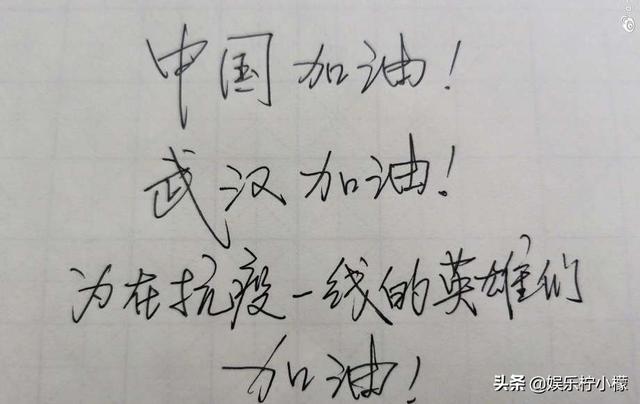 中国加油!
武汉加油!
为在抗疫一线的英雄们
加油!
头条 @娱乐柠小檬